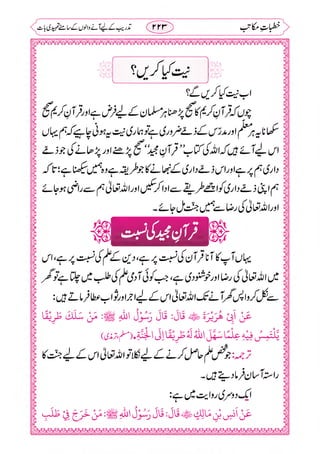 خطباتِ مکاتب ۲۲۳ تدریب کے لیے آنے والوں کے سامنے تمہیدی بات
نیت کیا کریں؟
اب نیت کیا کریں گے؟
چوں کہ قرآنِ کریم کا صحیح پڑھنا ہر مسلمان کے لیے فرض ہے اور قرآنِ کریم صحیح
سکھانا یہ ہر معلّم اور مدرّس کے ذمے ضروری ہے تو ہماری نیت یہی ہونی چاہیے کہ ہم یہاں
اس لیے آئے ہیں کہ اللہ کی کتاب ”قرآنِ مجید“ صحیح پڑھنے اور پڑھانے کی جو ذمے
داری ہم پر ہے اور اس ذمے داری کے نبھانے کا جو طریقہ ہے وہ ہمیں سیکھنا ہے؛ تاکہ
ہم اپنی ذمے داری کو اچھے طریقے سے ادا کریں اور اللہ تعالیٰ ہم سے راضی ہو جائے
اور اللہ تعالیٰ کی رضا سے ہمیں جنّت مل جائے۔
قرآنِ مجید کی نسبت
یہاں آپ کا آنا قرآن کی نسبت پر ہے، دین کے علم کی نسبت پر ہے، اس
میں اللہ تعالیٰ کی رضا اور خوشنودی ہے، جب کوئی آدمی علم کی طلب میں چلتا ہے تو گھر
سے نکل کر واپس گھر آنے تک اللہ تعالیٰ اس کے لیے اجر اور ثواب عطا فرماتے ہیں:
عَنْ اَبِیْ ھُرَیْرَۃَ ﷛ قَالَ: قَالَ رَسُوْلُ اللہِ ﷺ: مَنْ سَلَکَ طَرِیْقًا
یَّلْتَمِسُ فِیْہِ عِلْمًا سَھَّلَ اللہُ لَہٗ طَرِیْقًا اِلَی الْجَنَّۃِ. (مسلم، ترمذی)
ترجمہ: جو شخص علم حاصل کرنے کے لیے نکلا تو اللہ تعالیٰ اس کے لیے جنّت کا
راستہ آسان فرما دیتے ہیں۔
ایک دوسری روایت میں ہے:
عَنْ اَنَسِ بْنِ مَالِکٍ ﷛ قَالَ: قَالَ رَسُوْلُ اللہِ ﷺ: مَنْ خَرَجَ فِیْ طَلَبِ